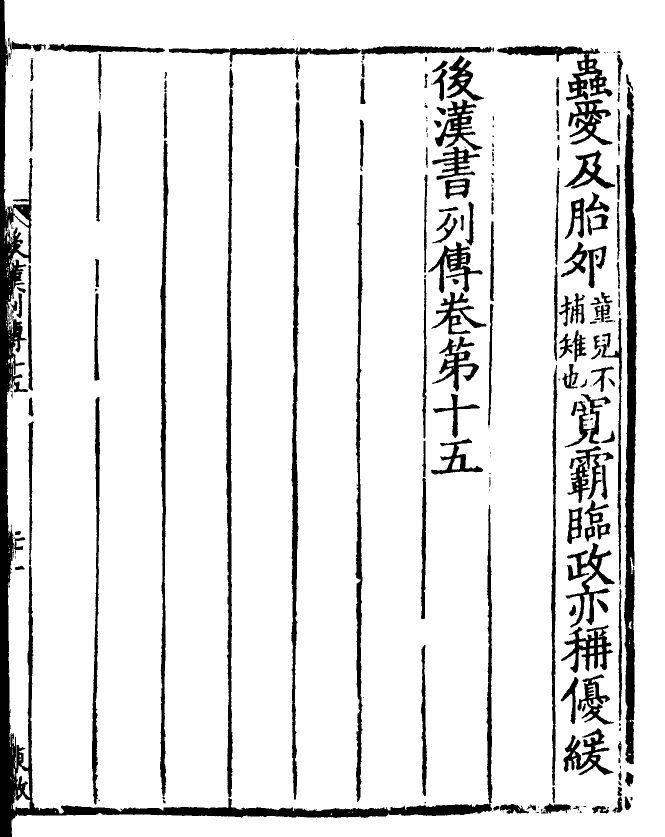 蟲愛及胎夘童兒不捕雉也寛霸臨政亦稱優緩
後漢書列傳卷第十五
後漢列傳十五
二十一